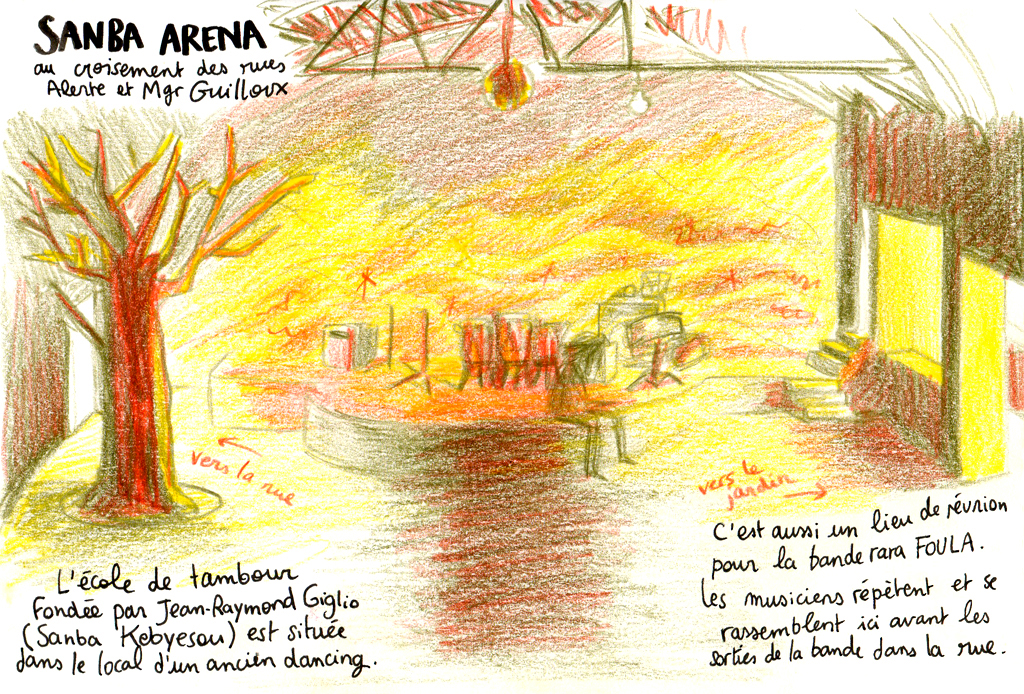 SANBA ARENA
au croisement des rues
Alerte et Mgr Guilloux
vers la rue
vers le
jardin
L'école de tambour
fondée par Jean-Raymond Giglio
(Sanba Kebyesou) est située
dans le local d'un ancien dancing.
C'est aussi un lieu de réunion
pour la bande rara FOULA.
Les musiciens répètent et se
rassemblent ici avant les
sorties de la bande dans la rue.